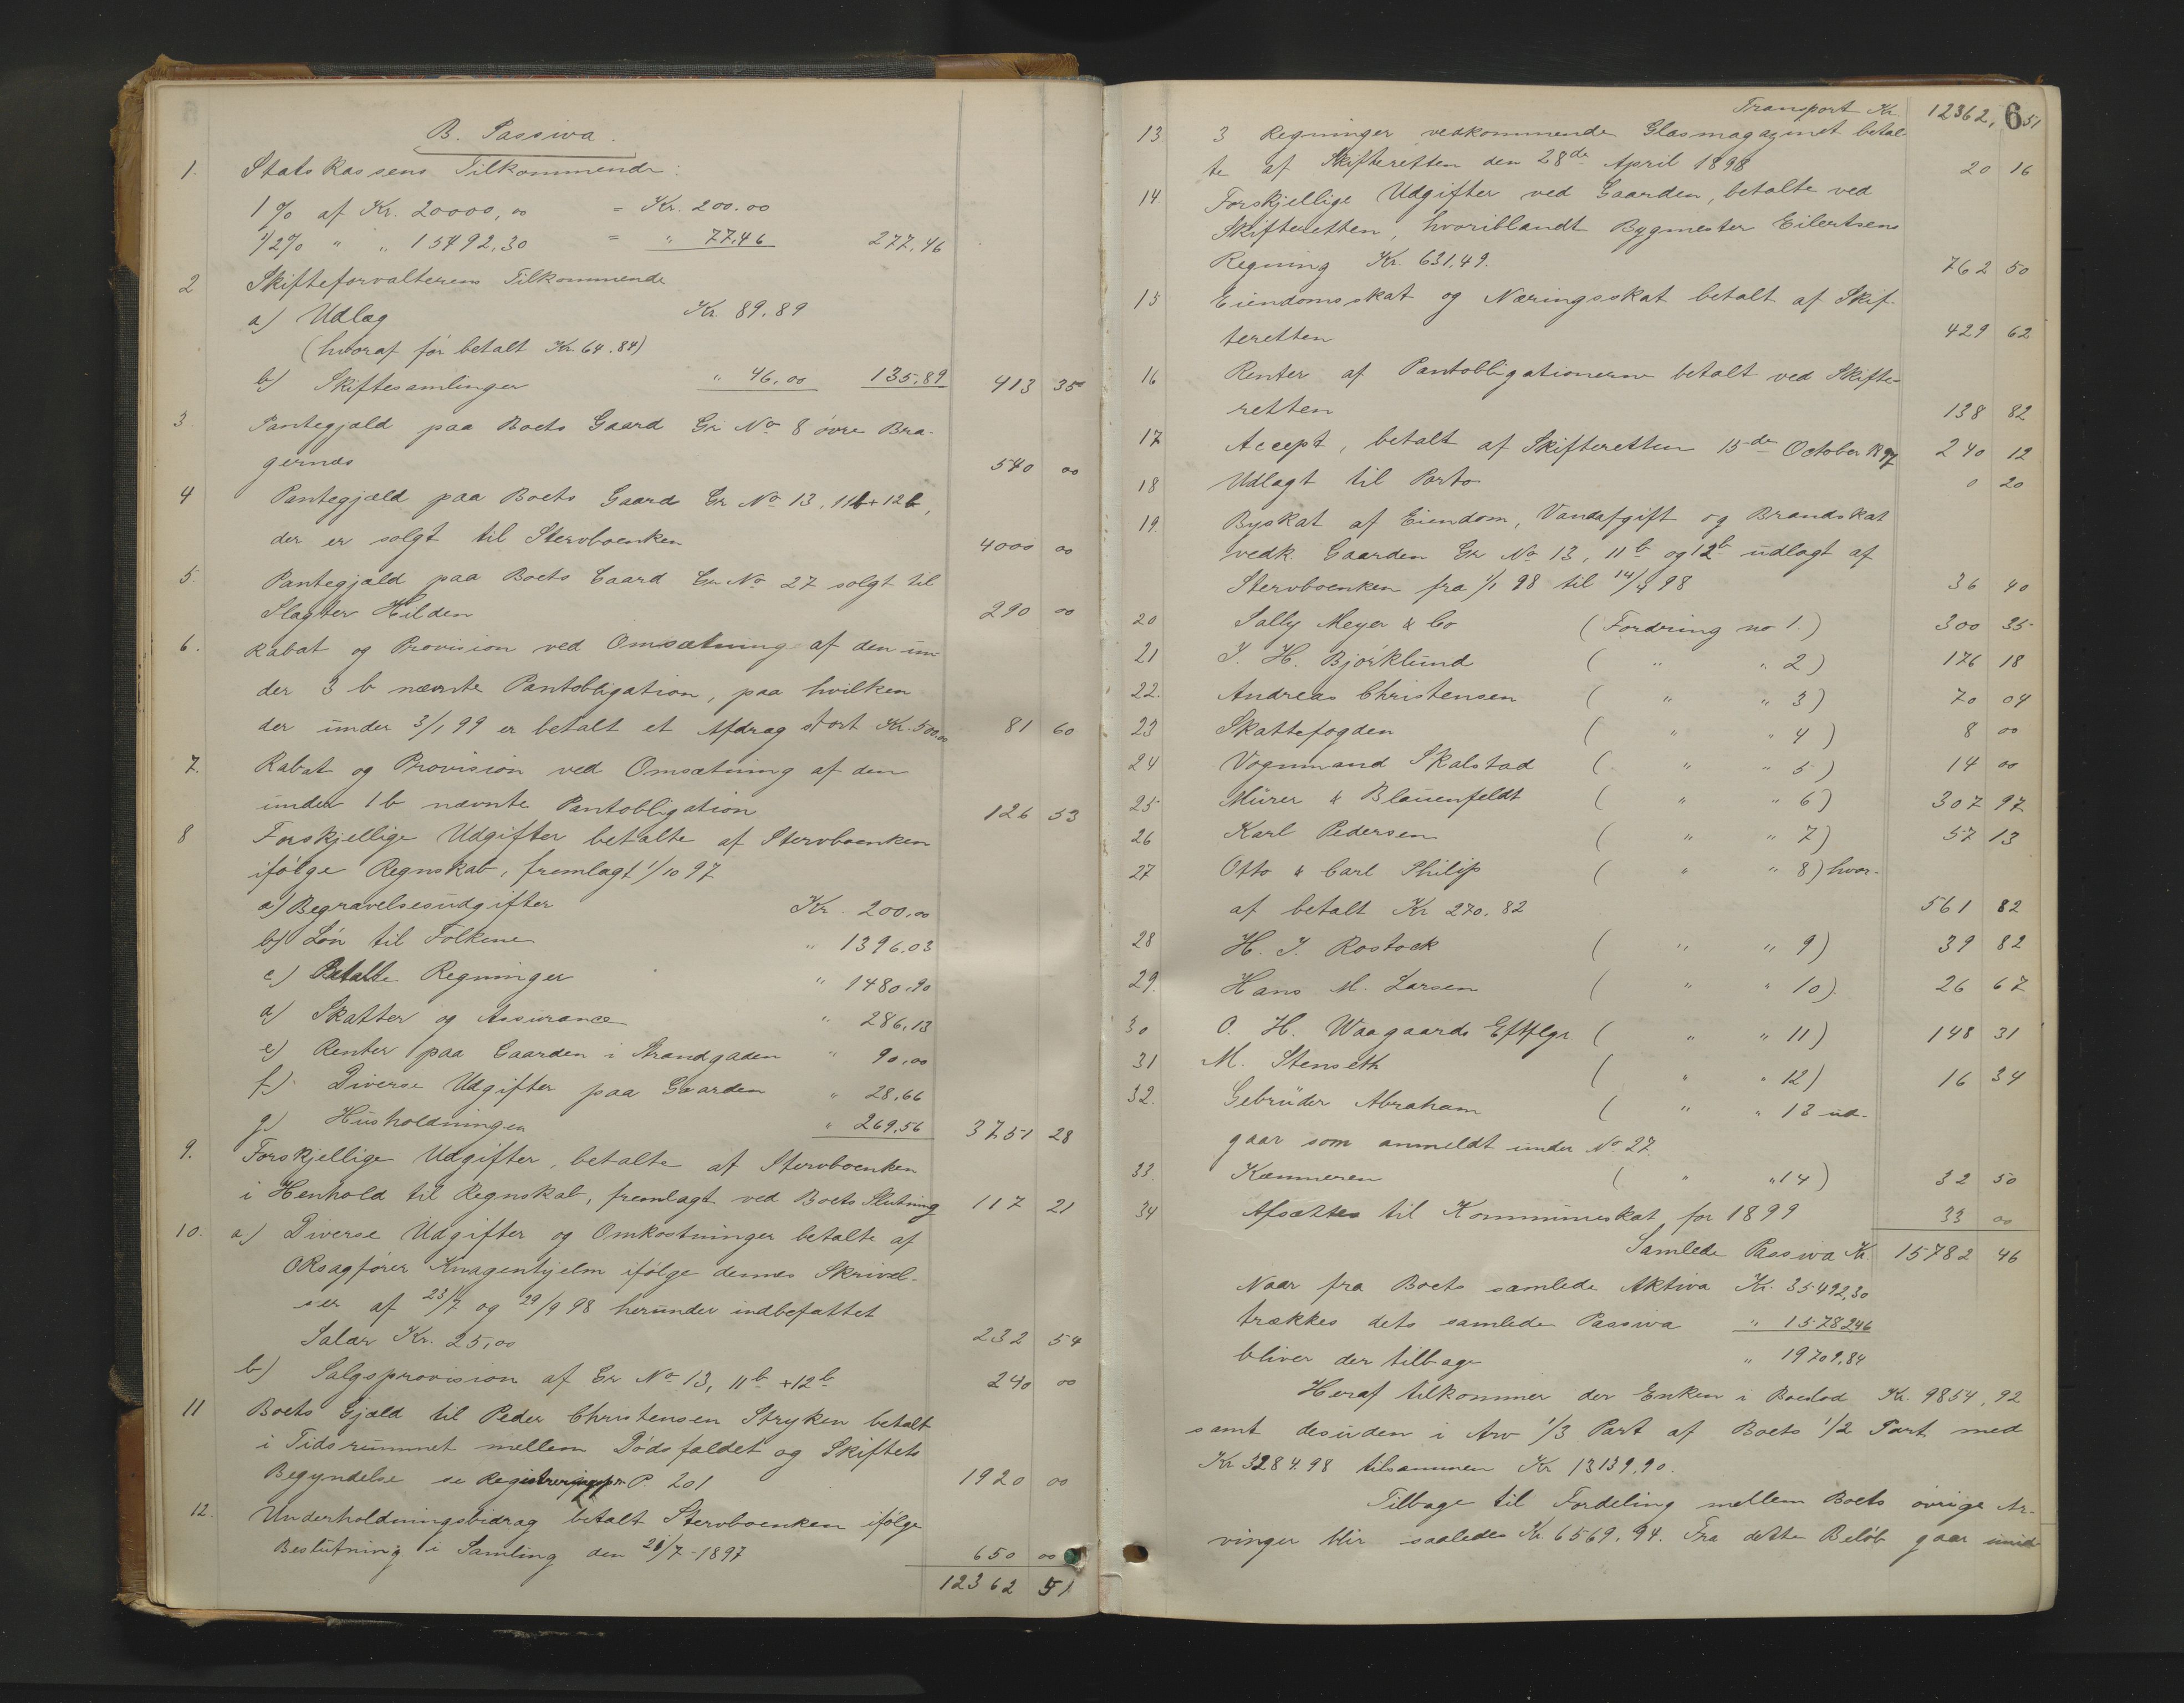 B. Passiva.
1. Statskassens Tilkommende:
1 % af Kr. 20000,00 = Kr. 200.00
1/2% " " 15492,30 = " 77,46 277,46
2 Skifteforvalterens Tilkommende
a) Udlæg Kr 89.89
(hvoraf før betalt Kr. 64.84)
b) Skiftesamlinger " 46,00 135,89 413 35
3. Pantegjæld paa Boets Gaard Gr No 8 øvre Bra-
gernæs 540 00
4 Pantegjæld paa Boets Gaard Gr No 13, 11b + 12b,
der er solgt til Stervboenken 4000 00
5. Pantegjæld paa Boets Gaard Gr No 27 solgt til
Slagter Hilden 290 00
6. Rabat og Provision ved Omsætning af den un-
der 3 b nævnte Pantobligation, paa hvilken
der under 3/1 99 er betalt et Afdrag stort Kr. 500.00 81 60
7. Rabat og Provision ved Omsætning af den
under 1 b nævnte Pantobligation 126 53
8 Forskjellige Udgifter betalte af Stervboenken
ifølge Regnskab, fremlagt 1/10 97
a) Begravelsesudgifter Kr. 200,00
b) Løn til Folkene " 1396.03
c) Betalte Regninger " 1480,90
d) Skatter og Assurance " 286,13
e) Renter paa Gaarden i Strandgaden " 90,00
f) Diverse Udgifter paa Gaarden " 28,66
g) Husholdningen " 269,56 3751 28
9. Forskjellige Udgifter, betalte af Stervboenken
i Henhold til Regnskab, fremlagt ved Boets Slutning 117 21
10. a) Diverse Udgifter og Omkostninger betalte af
ORsagfører Knagenhjelm ifølge dennes Skrivel-
ser af 23/7 og 29/9 98 herunder indbefattet
Salær Kr. 25,00 232 54
b) Salgsprovision af Gr No 13, 11b + 12b 240 00
11 Boets Gjæld til Peder Christensen Stryken betalt
i Tidsrummet mellem Dødsfaldet og Skiftets
Begyndelse se Registreringspr. P. 201 1920 00
12. Underholdningsbidrag betalt Stervboenken ifølge
Beslutning i Samling den 28/7-1897 650 00
12362 51
6
Transport Kr. 12362, 51
13 3 Regninger vedkommende Glasmagazinet betal-
te af Skifteretten den 28de April 1898 20 16
14 Forskjellige Udgifter ved Gaarden, betalte ved
Skifteretten, hvoriblandt Bygmester Eilertsens
Regning Kr. 631,49. 762 50
15 Eiendomsskat og Næringsskat betalt af Skif-
teretten 429 62
16 Renter af Pantobligationerne betalt ved Skifte-
retten 138 82
17 Accept, betalt af Skifteretten 15de October 1897 240 12
18 Udlagt til Porto 0 20
19. Byskat af Eiendom, Vandafgift og Brandskat
vedk. Gaarden Gr No 13, 11b og 12b udlagt af
Stervboenken fra 1/1 98 til 14/4 98 36 40
20 Sally Meyer & Co (Fordring no 1.) 300 35
21 I. H. Bjørklund ( " " 2) 176 18
22. Andreas Christensen ( " " 3) 70 04
23 Skattefogden ( " " 4) 8 00
24 Vognmand Skalstad ( " " 5) 14 00
25 Mürer & Blauenfeldt ( " " 6) 307 97
26 Karl Pedersen ( " " 7) 57 13
27 Otto & Carl Philip ( " " 8) hvor-
af betalt Kr 270.82 561 82
28 H. I. Rostock ( " " 9) 39 82
29. Hans M. Larsen ( " " 10) 26 67
30 O. H. Waagaards Eftflgr ( " " 11) 148 31
31 M. Stenseth ( " " 12) 16 34
32. Gebrüder Abraham ( " " 13 ud-
gaar som anmeldt under No 27.
33. Kæmneren ( " " 14) 32 50
34 Afsættes til Kommuneskat for 1899 33 00
Samlede Passiva Kr. 15782 46
Naar fra Boets samlede Aktiva Kr. 35492,30
trækkes dets samlede Passiva " 15782,46
bliver der tilbage " 19709,84
Heraf tilkommer der Enken i Boeslod Kr. 9854,92
samt desuden i Arv 1/3 Part af Boets 1/2 Part med
Kr 3284.98 tilsammen Kr 13139,90.
Tilbage til Fordeling mellem Boets øvrige Ar-
vinger blir saaledes Kr. 6569.94. Fra dette Beløb gaar imid